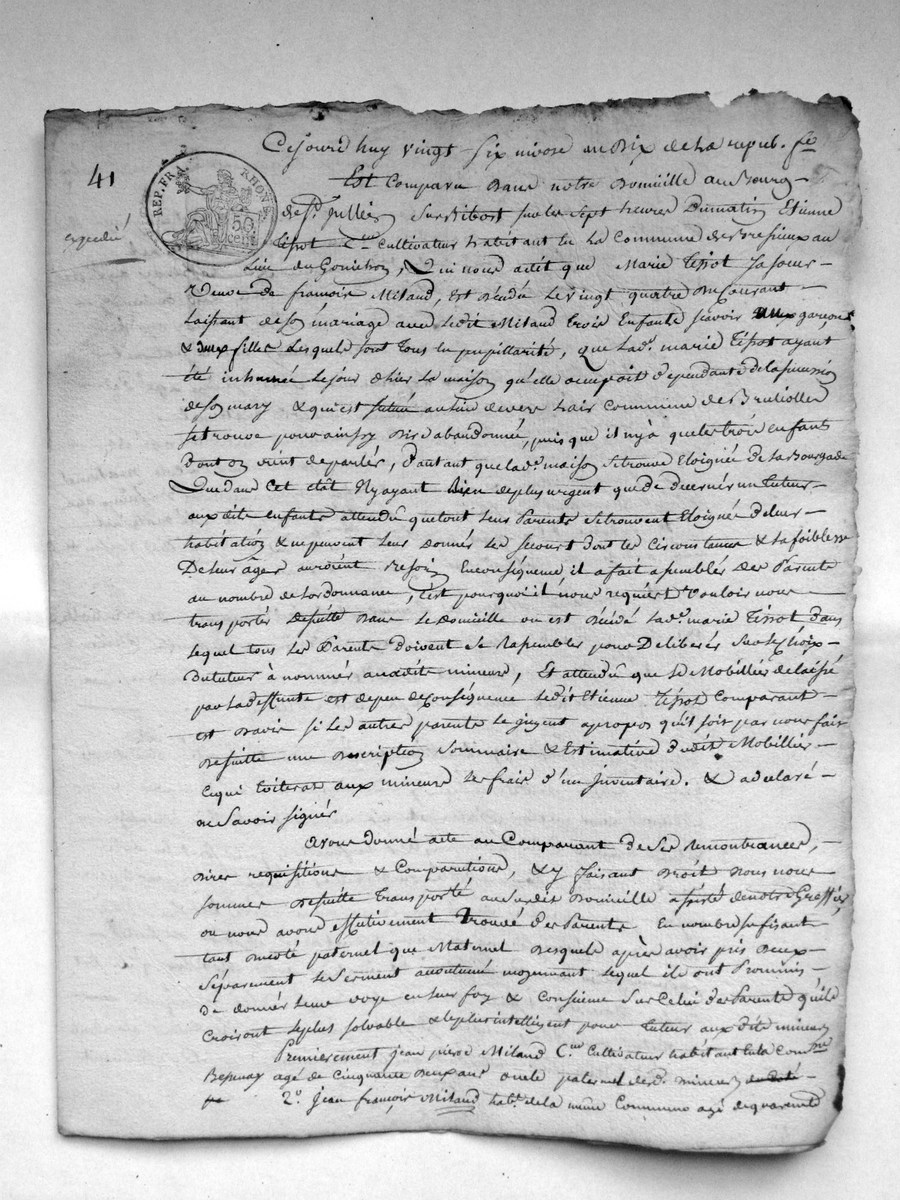 41
Cejourd huy vingt six nivose an Dix de La repub. fse
REP. FRA. RHONE 50 cent.
Est Comparu Dans notre Domicille au Bourg
expedié
de St jullien Sur Bibost sur les Sept heures Dumatin Etienne
Tissot Cen Cultivateur habitant En La Commune de Bressieux au
Lieu du , Qui nous adit que Marie Tissot Sa soeur
veuve de francois Milaud, est décédée Le vingt quatre Du Courant
Laissant de son mariage avec Ledit Milaud trois Enfants scavoir garçons
& deux filles Lesquels sont tous En pupillarité, que Lade marie Tissot ayant
été inhumée Lejour d'hier La maison qu'elle occupoit Dependante de la succession
de son mary & qui est située au Lieu de commune de Brullioles
se trouve pour ainsy Dire abandonnée, puis que il n'y à que les trois enfants
dont on vient de parler, d'autant que Lade maison se trouve Eloignée de La Bourgade
Que dans Cet état N'y ayant Rien de plus urgent que de decerner un Tuteur
aux dits enfants attendû que tous Leurs Parents se trouvent Eloignés de leur
habitation & ne peuvent Leur donner Les secours dont les Circonstances & La foiblesse
De leur âge auroient Besoin En conséquence, il a fait assembler des Parents
au nombre de Lordonnance, C'est pourquoi il nous requiert Vouloir nous
transporter de suitte Dans Le domicille ou est décédée Lade marie Tissot dans
Lequel tous Les Parents doivent Se rassembler pour Deliberer Sur Le Choix
Du tuteur à nommer auxdits mineurs, Et attendû que Le Mobillier delaissé
par La deffunte est de peu de Conséquence Ledit Etienne Tissot Comparant
est Davis si Les autres parents Le jugent apropos qu'il soit par nous fait
de suitte une Description Sommaire & Estimative dudit Mobillier
Ce qui Evitera aux mineurs Les frais d'un Inventaire. & a declaré
ne Savoir signer
Avons donné acte au Comparant de Ses remontrances,
Dires requisitions & Comparutions, & y faisant Droit Nous nous
sommes De suitte transporté au Susdit Domicille assisté de notre Greffier,
ou nous avons Effectivement Trouvé des Parents En nombre suffisant
tant Du coté paternel que Maternel Desquels après avoir pris Deux
Séparement Le Serment accoutumé moyennant Lequel ils ont Promis
De donner Leurs voix en Leur foy & Conscience Sur Celui des Parents qu'ils
Croiront Le plus solvable & Le plus intelligent pour tuteur aux dits mineurs
Premierement jean pierre Milaud Cen Cultivateur habitant En La Comune
Bessenay agé de Cinquante Deux ans oncle paternel desds mineurs
2o. jean françois Milaud habt de La même Commune agé de quarente